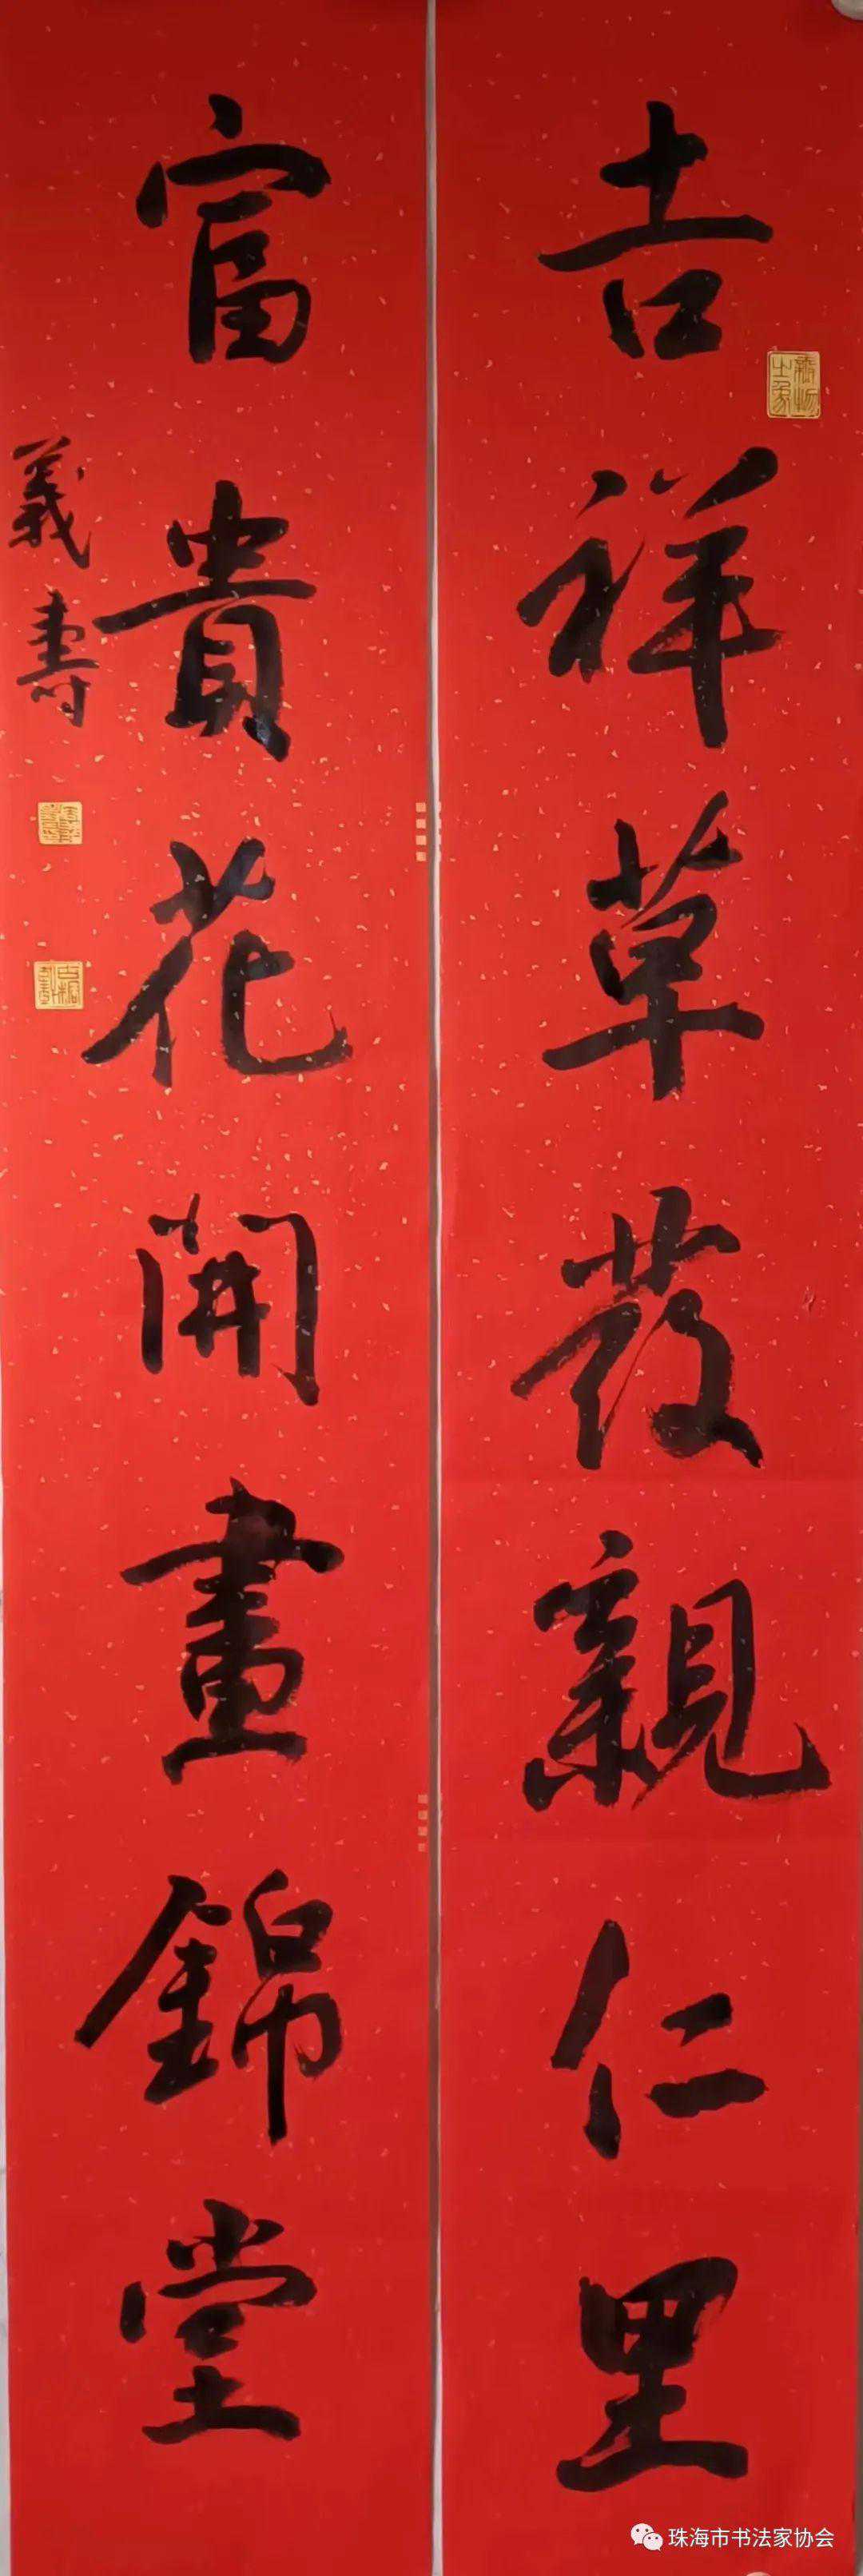 吉祥草發親仁里
富貴花開畫錦堂
義壽
珠海市书法家协会